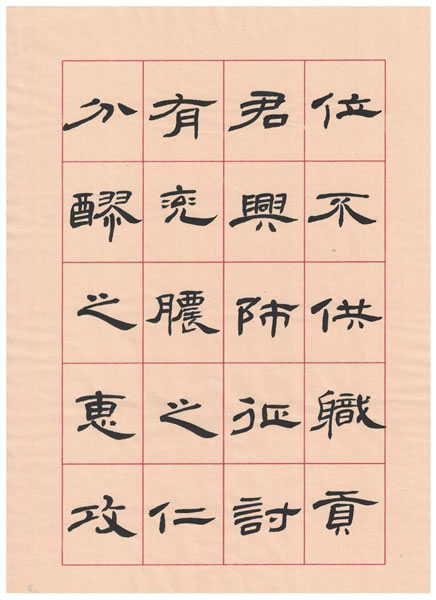 位不供職貢
君興師征討
有兗膿之仁
分醪之惠攻